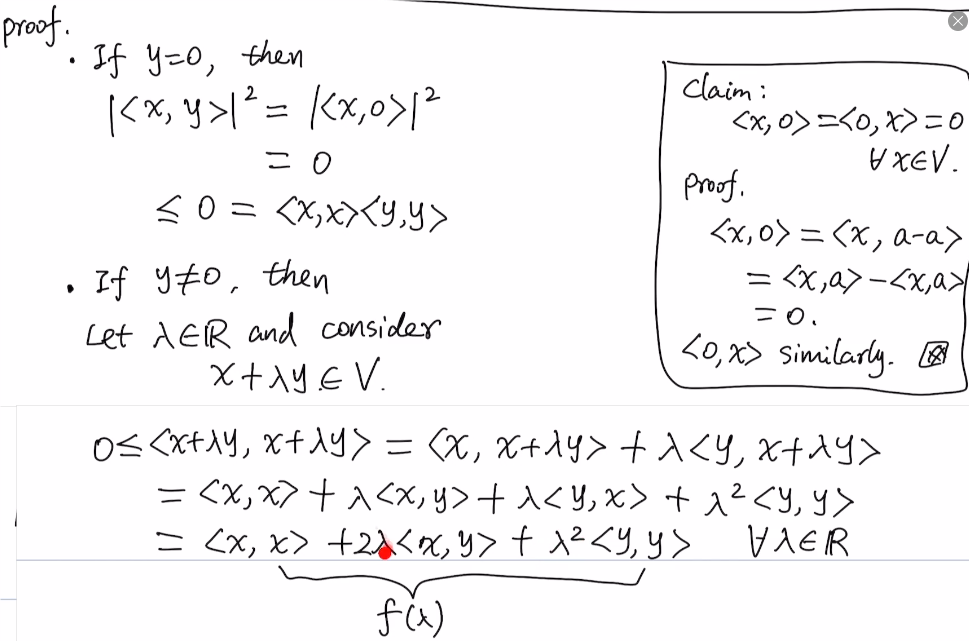 proof.
· If y=0, then
|<x, y>|² = |<x,0>|²
= 0
≤ 0 = <x,x><y,y>
· If y≠0, then
Let λ∈ℝ and consider
x+λy ∈ V.
Claim:
<x,0>=<0,x>=0
∀x∈V.
proof.
<x,0> = <x, a-a>
= <x,a> - <x,a>
= 0.
<0,x> similarly. ⊠
0≤<x+λy, x+λy> = <x, x+λy> + λ<y, x+λy>
= <x,x> + λ<x,y> + λ<y,x> + λ²<y,y>
= <x,x> +2λ<x,y> + λ²<y,y> ∀λ∈ℝ
f(λ)